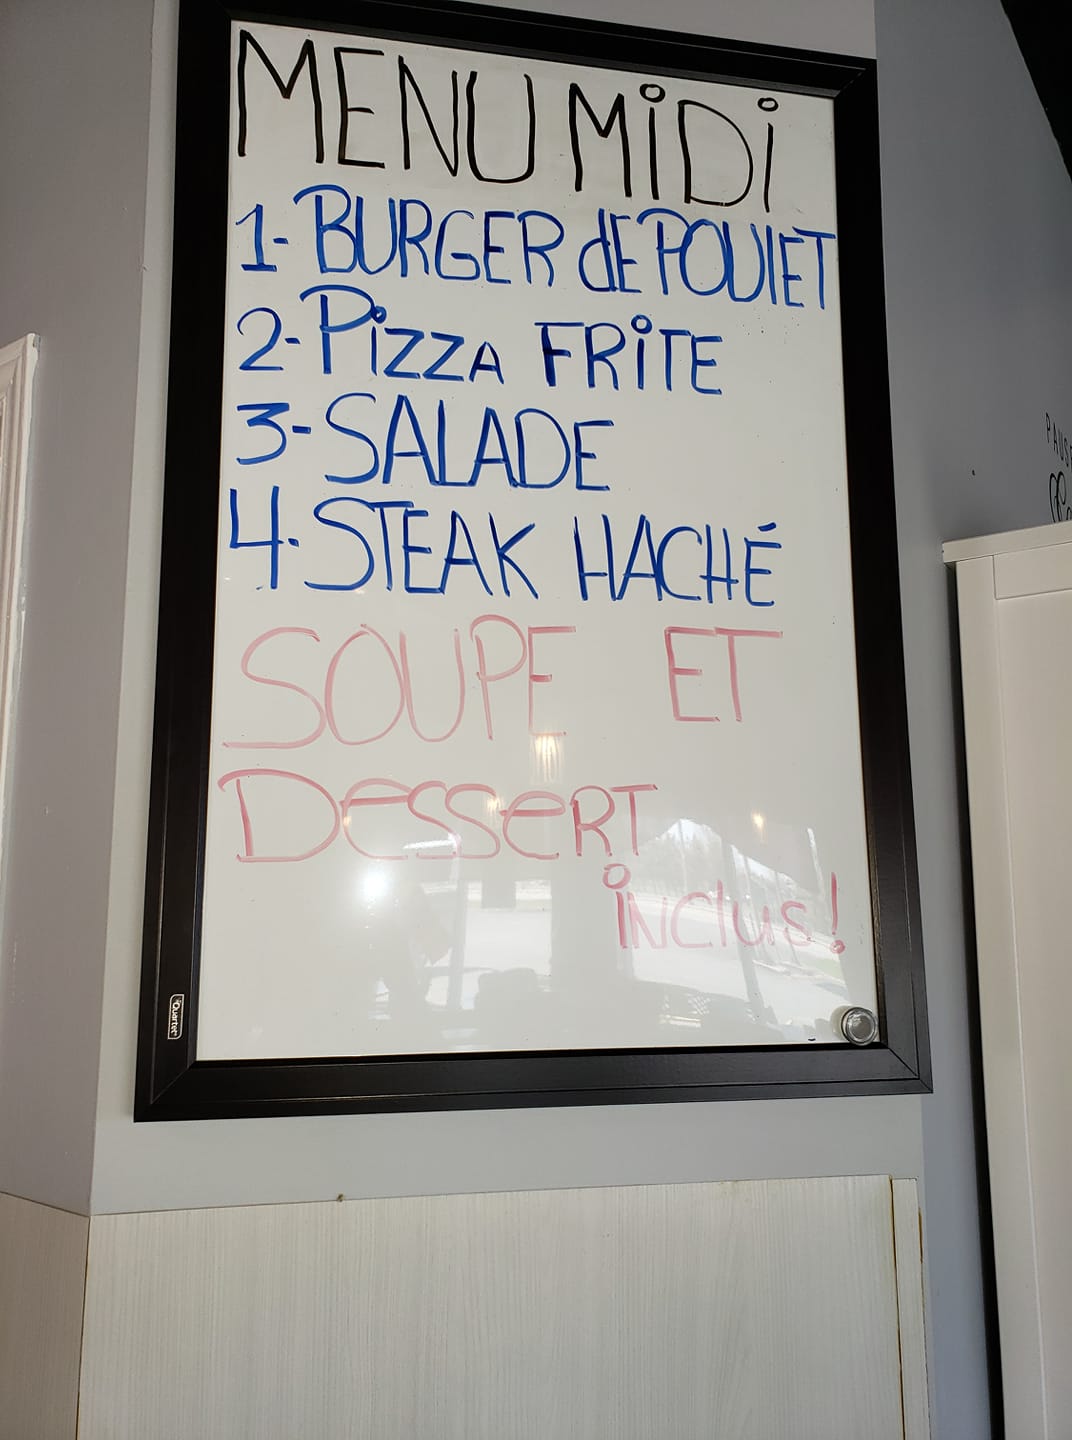 MENU MiDi
1- BURGER dE POULET
2- Pizza FRiTE
3- SALADE
4- STEAK HACHÉ
SOUPE ET
DesserT
inclus!
Quartet
PAUSE